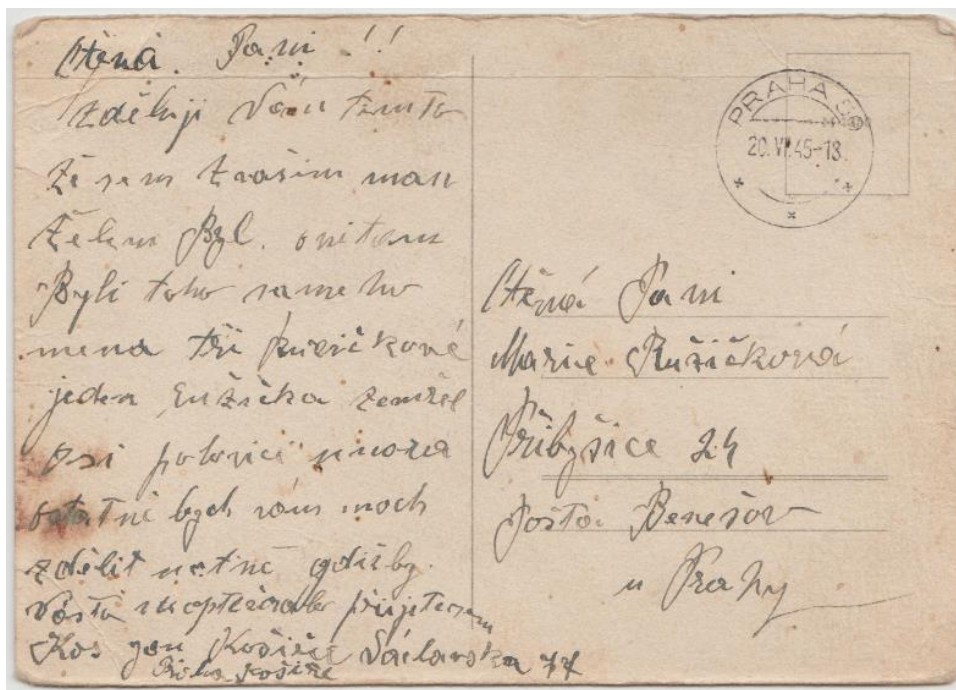 Ctěná Paní!!
Zděluji Vám timto
že sem z vašim man
želem Byl. oni tam
Byli toho sameho
mena tři Ružičkové
jeden Ružička zemřel
asi polovici unora
ostatné bych vám moch
zdělit ustně gdiby
přijeten
Kos Jan Košiře Václavska 77
Praha Košiře
PRAHA
20. VI. 45-18
Ctěná Pani
Marie Ružičková
Přibyšice 24
Pošta Benešov
u Prahy